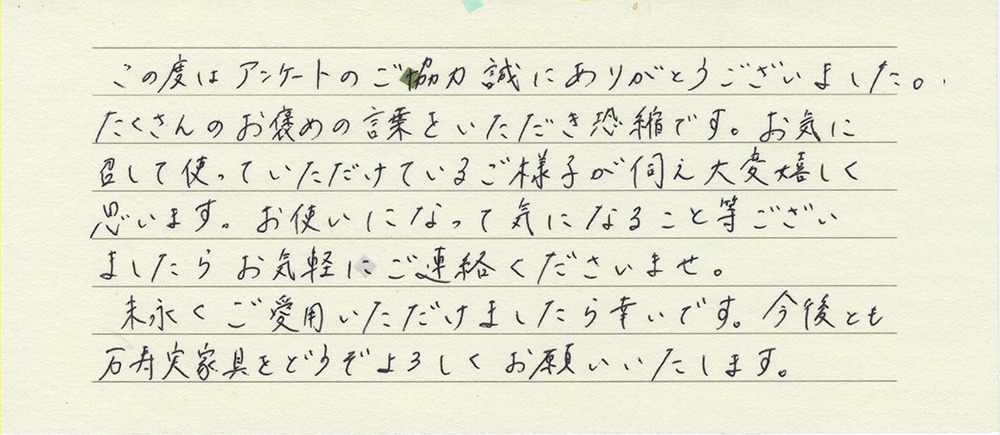 この度はアンケートのご協力誠にありがとうございました。
たくさんのお褒めの言葉をいただき恐縮です。お気に
召して使っていただけているご様子が伺え大変嬉しく
思います。お使いになって気になること等ござい
ましたらお気軽にご連絡くださいませ。
末永くご愛用いただけましたら幸いです。今後とも
石寿実家具をどうぞよろしくお願いいたします。